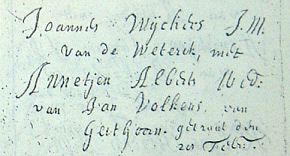 Joannes Wijckers J.M.
van de Weterik, met
Annetjen Alberts Wed:
van Jan Volkens. van
Giethoorn. getrout den
20 Febr: